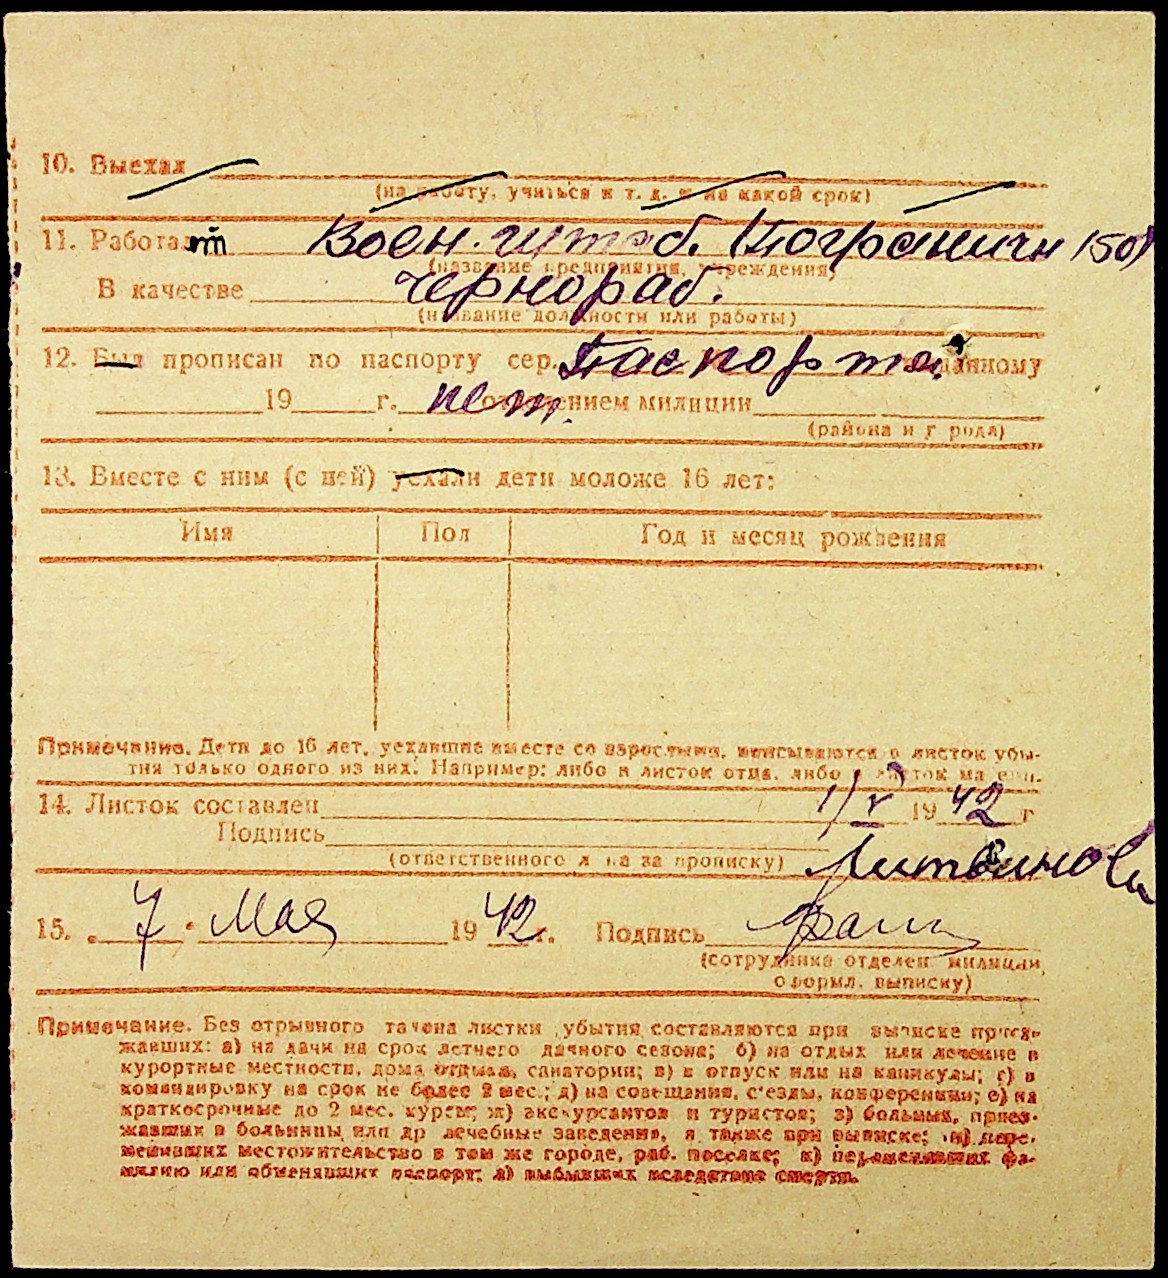 10. Выехал
(на работу, учиться и т. д. и на какой срок)
11. Работает Воен. штаб. (Погранични 150)
(название предприятия, учреждения)
В качестве чернораб.
(название должности или работы)
12. Был прописан по паспорту сер. Паспорта выданному
19 г. нет. отделением милиции
(района и города)
13. Вместе с ним (с ней) уехали дети моложе 16 лет:
Имя Пол Год и месяц рождения
Примечание. Дети до 16 лет, уехавшие вместе со взрослыми, вписываются в листок убы-
тия только одного из них. Например: либо в листок отца, либо в листок матери.
14. Листок составлен 1/V 1942 г
Подпись Литвинова
(ответственного лица за прописку)
15. 7 Мая 1942 г. Подпись
(сотрудника отделен милиции,
оформл. выписку)
Примечание. Без отрывного талона листки убытия составляются при выписке приез-
жавших: а) на дачи на срок летнего дачного сезона; б) на отдых или лечение в
курортные местности, дома отдыха, санатории; в) в отпуск или на каникулы; г) в
командировку на срок не более 2 мес.; д) на совещания, с'езды, конференции; е) на
краткосрочные до 2 мес. курсы; ж) экскурсантов и туристов; з) больных, приез-
жавших в больницы или др лечебные заведения, а также при выписке; и) пере-
менивших местожительство в том же городе, раб. поселке; к) переменивших фа-
милию или обменявших паспорт; л) выбывших вследствие смерти.